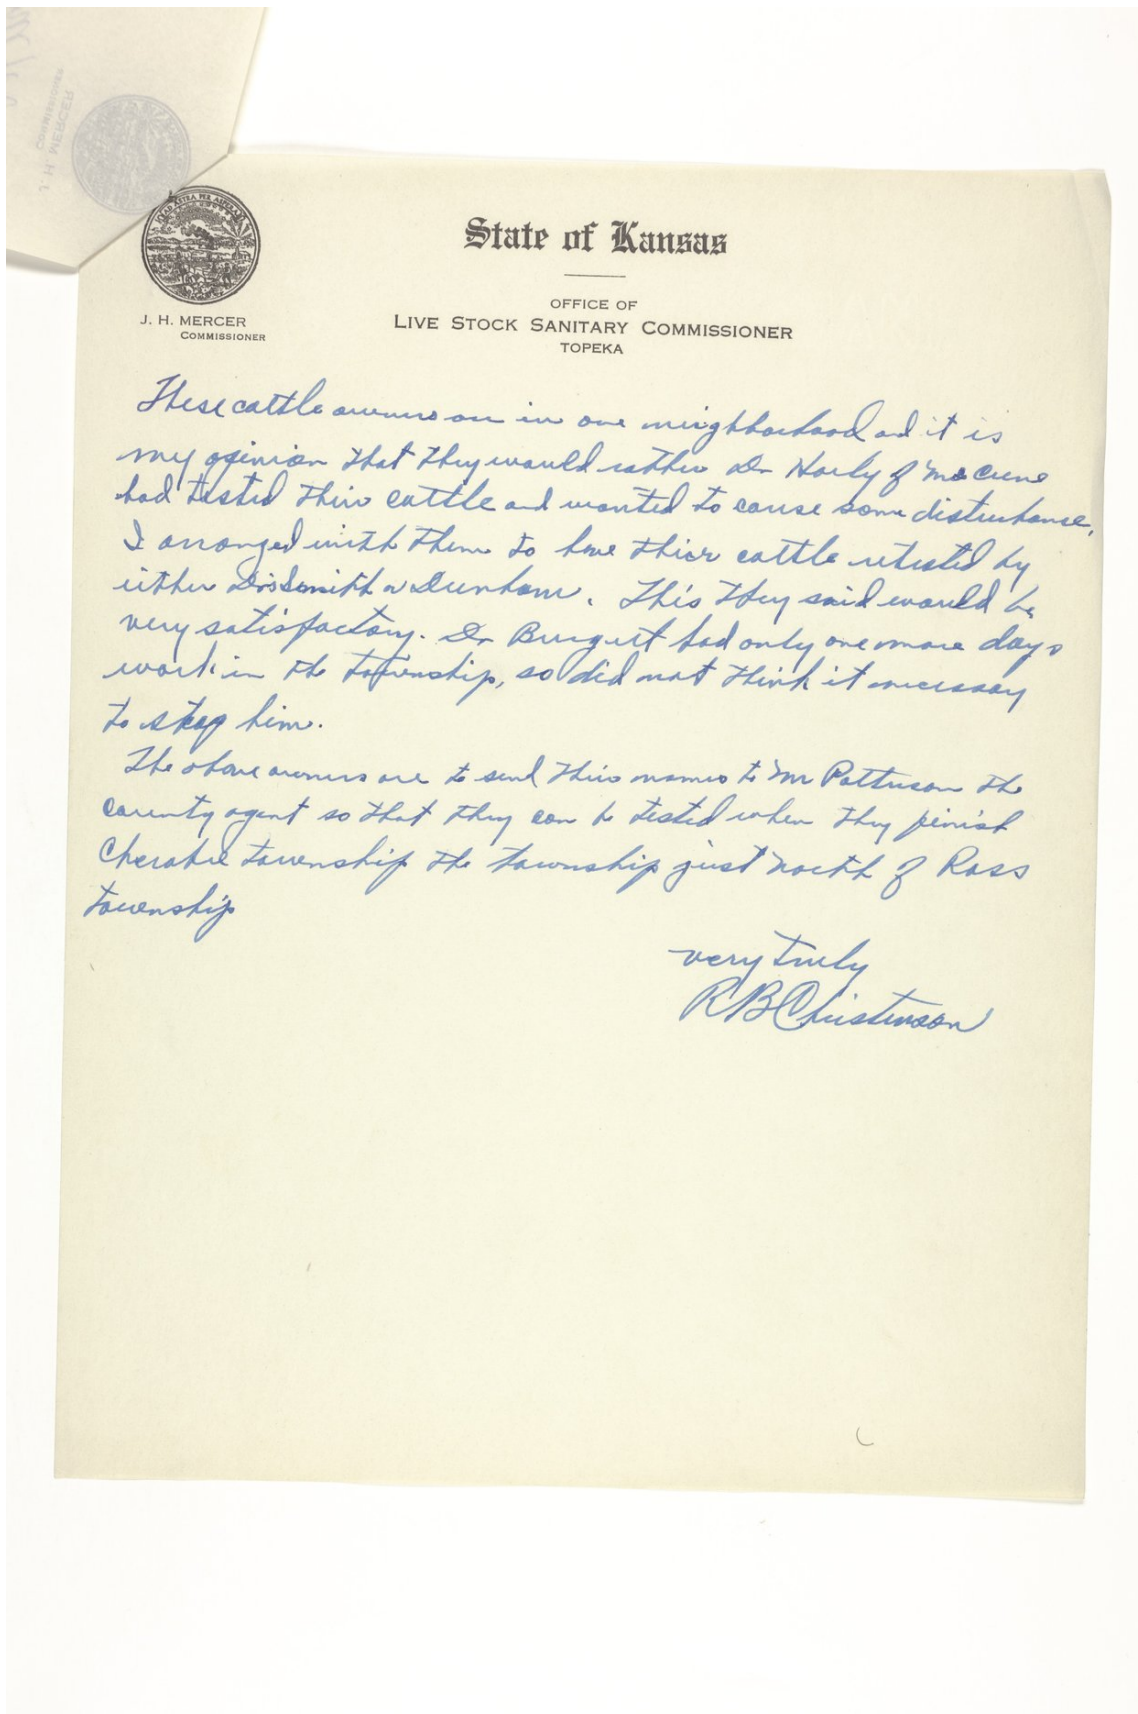 AD ASTRA PER ASPERA
State of Kansas
OFFICE OF
LIVE STOCK SANITARY COMMISSIONER
TOPEKA
J. H. MERCER
COMMISSIONER
These cattle owners are in one neighborhood and it is
my opinion that they would rather Dr of McCune
had tested their cattle and wanted to cause some disturbance.
I arranged with them to have thier cattle retested by
either Drs Smith or Dunham. This they said would be
very satisfactory. Dr had only one more days
work in the township, so did not think it necessary
to stop him.
The above owners are to send their names to Mr Patterson the
county agent so that they can be tested when they finish
Cherokee township the township just north of Ross
township
very truly
R B Christenson
J. H. MERCER
COMMISSIONER